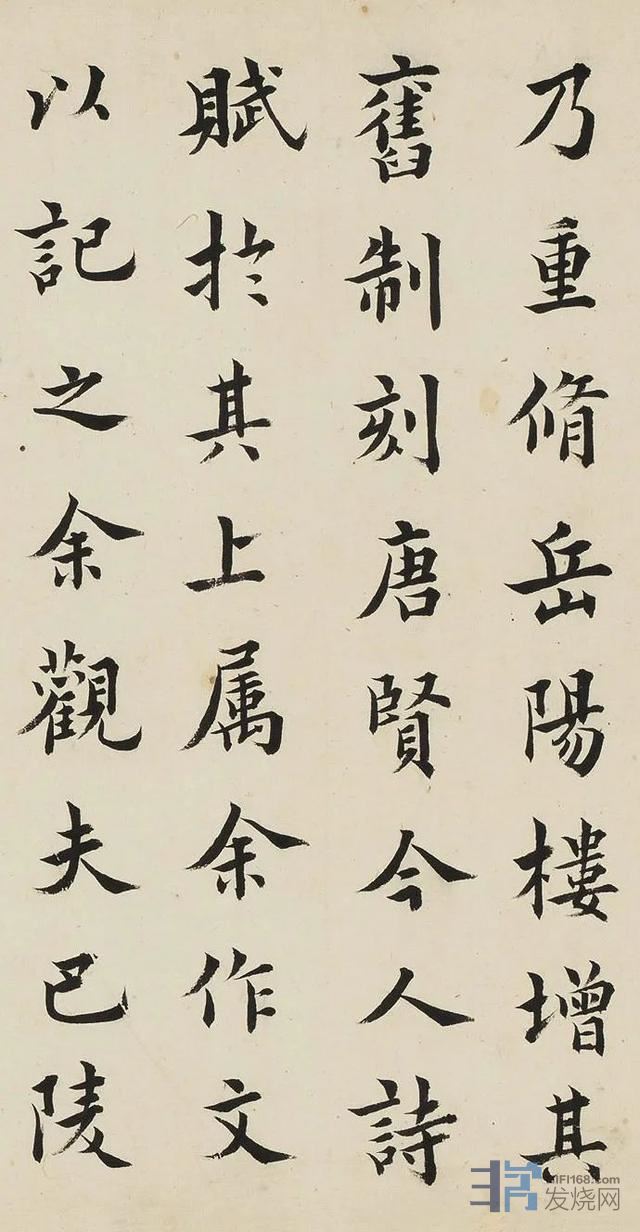 乃重脩岳陽樓增其
舊制刻唐賢今人詩
賦於其上属余作文
以記之余觀夫巴陵
HIFI168.com
发烧网